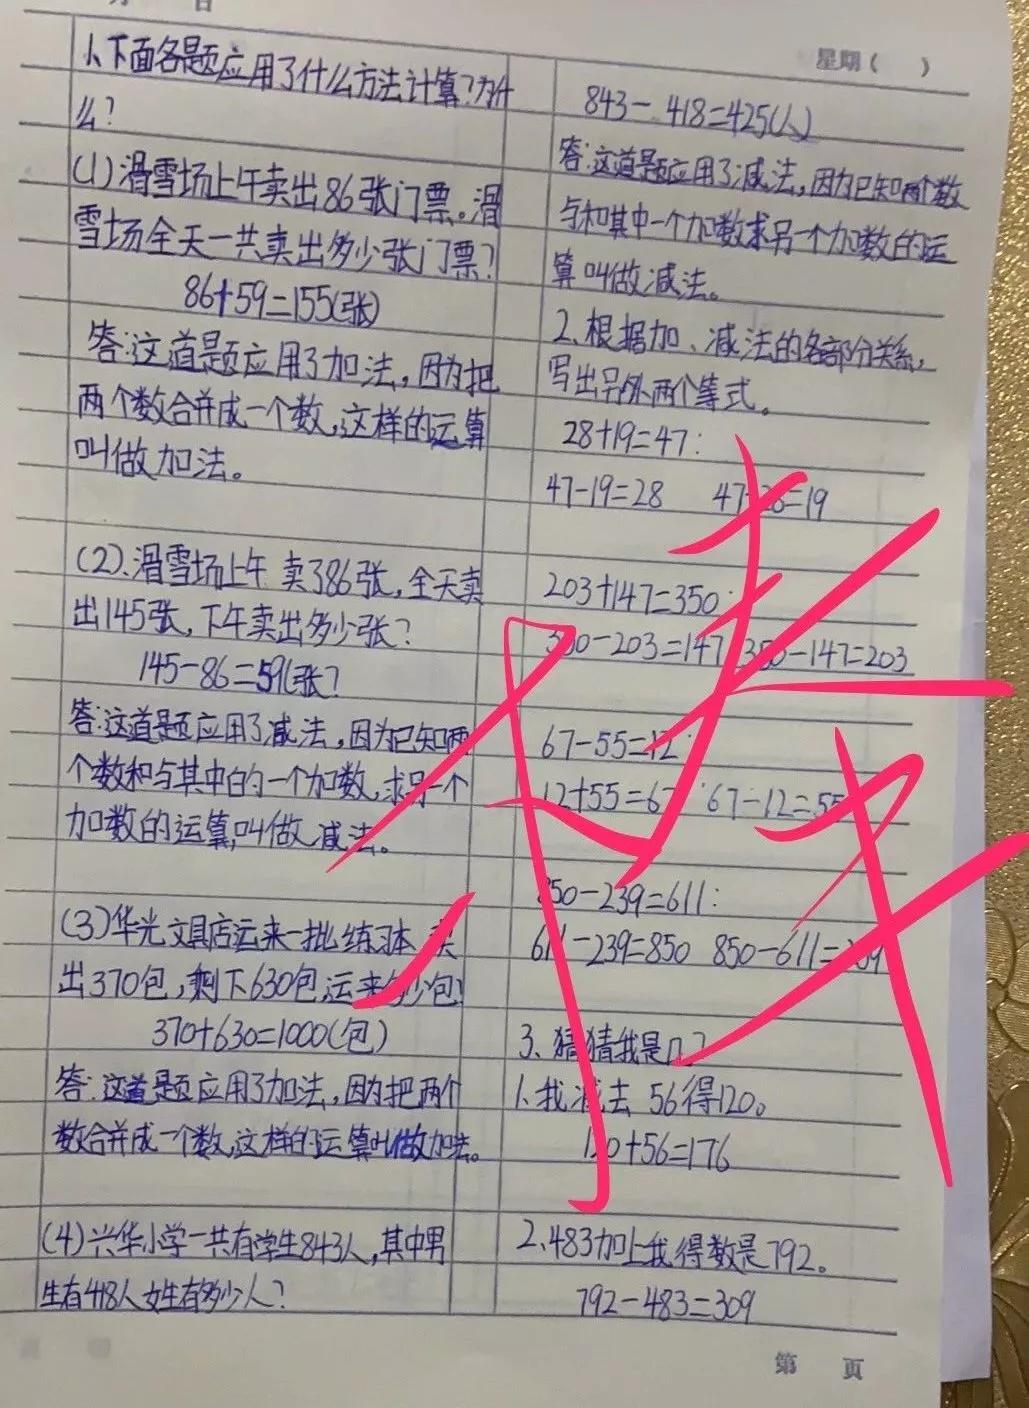 日
星期（ ）
1、下面各题应用了什么方法计算？为什
么？
(1)滑雪场上午卖出86张门票。滑
雪场全天一共卖出多少张门票？
86+59=155(张)
答：这道题应用了加法，因为把
两个数合并成一个数，这样的运算
叫做加法。
(2)、滑雪场上午卖386张，全天卖
出145张，下午卖出多少张？
145-86=59(张?
答：这道题应用了减法，因为已知两
个数和与其中的一个加数，求另一个
加数的运算，叫做减法。
(3)华光文具店运来一批练习本，卖
出370包，剩下630包，运来多少包
370+630=1000(包)
答：这道题应用了加法，因为把两个
数合并成一个数，这样的运算叫做加法。
(4)兴华小学一共有学生843人，其中男
生有418人女生有多少人？
843-418=425(人)
答：这道题应用了减法，因为已知两个数
与和其中一个加数求另一个加数的运
算叫做减法。
2、根据加、减法的各部分关系，
写出另外两个等式。
28+19=47：
47-19=28 47-28=19
203+147=350：
350-203=147 350-147=203
67-55=12：
12+55=67 67-12=55
850-239=611：
611-239=850 850-611=239
3、猜猜我是几？
1、我减去56得120。
120+56=176
2、483加上我得数是792。
792-483=309
第 页